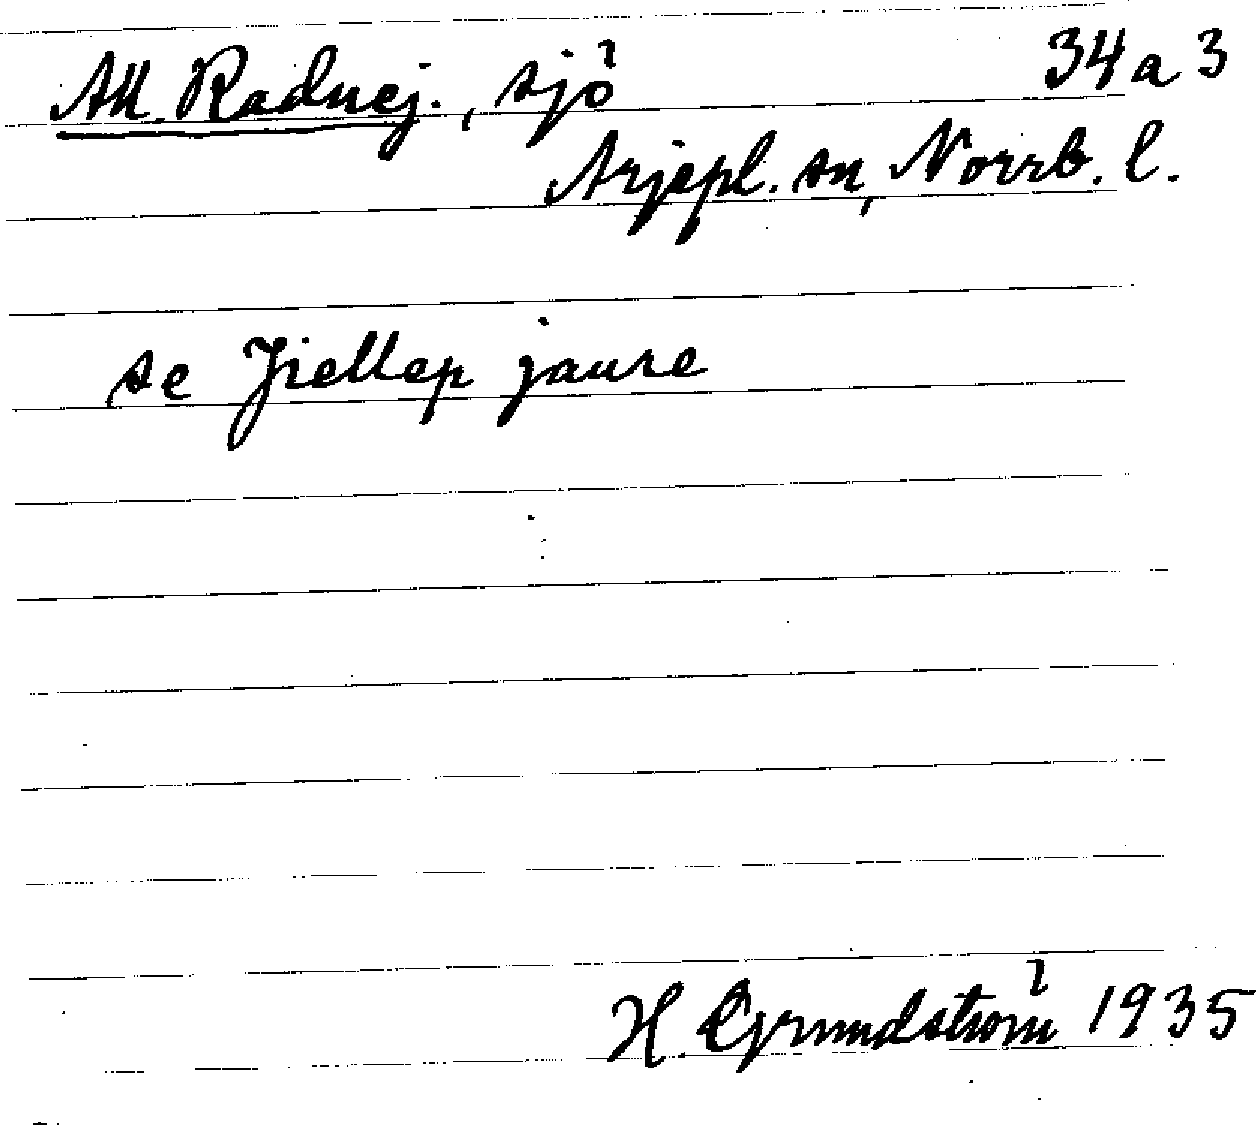 All. Radnej., sjö 34 a 3
Arjepl. sn, Norrb. l.
se Jiellep jaure
H. Grundström 1935